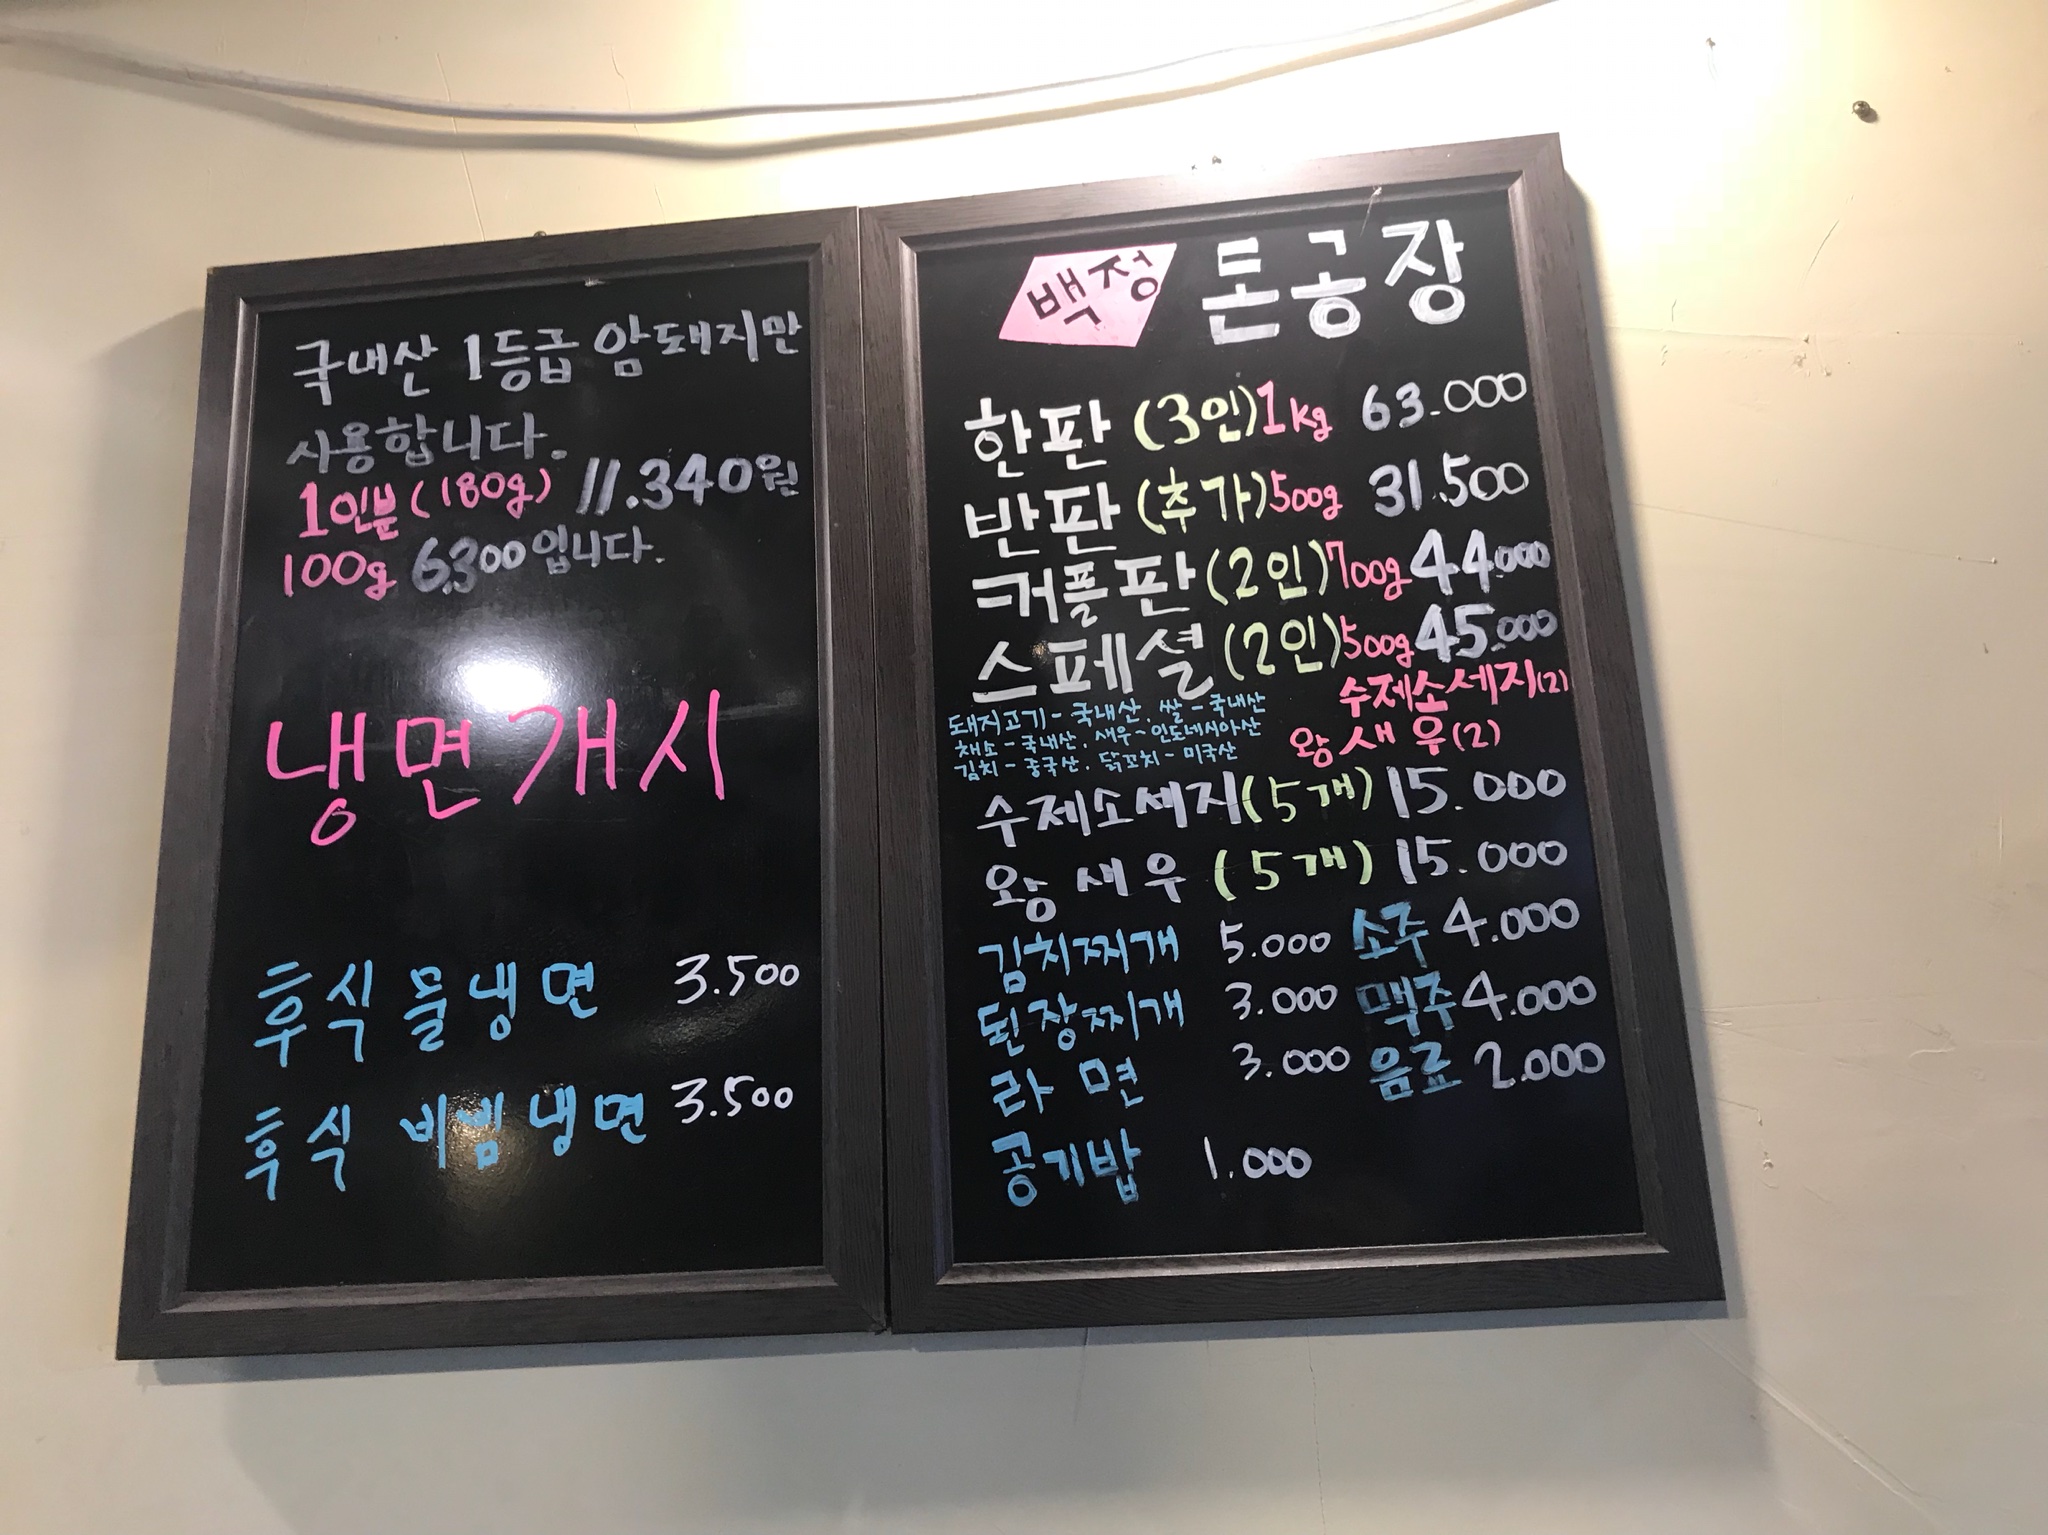 국내산 1등급 암돼지만
사용합니다.
1인분(180g) 11.340원
100g 6.300입니다.
냉면개시
후식 물냉면 3.500
후식 비빔냉면 3.500
백정 돈공장
한판 (3인) 1kg 63.000
반판 (추가) 500g 31.500
커플판 (2인) 700g 44.000
스페셜 (2인) 500g 45.000
수제소세지(2)
왕새우(2)
돼지고기-국내산, 쌀-국내산
채소-국내산, 새우-인도네시아산
김치-중국산, 닭꼬치-미국산
수제소세지(5개) 15.000
왕새우 (5개) 15.000
김치찌개 5.000 소주 4.000
된장찌개 3.000 맥주 4.000
라면 3.000 음료 2.000
공기밥 1.000